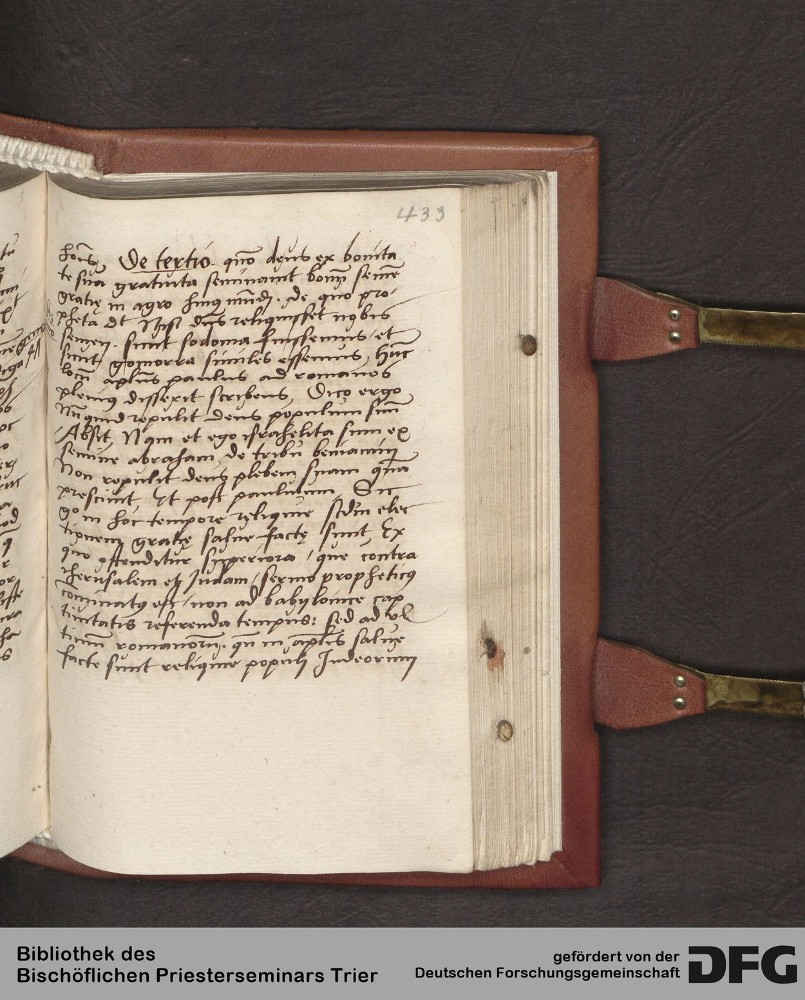 433
hoīs, De tertio. quō deus ex bonita
te sua gratuita seminavit bonū semē
gratię in agro huius mūdi. de quo pro-
pheta dt Nisi dn̄s reliquisset nobis
semen. sicut sodoma fuissemus, et
sicut gomorra similes essemus, Hūc
locū apłus paulus ad romanos
plenius disserit scribens, Dico ergo
Nūquid repulit deus populum suū
Absit, Nam et ego israhelita sum ex
semine abraham, de tribu beniamin
Non repulit deus plebem suam quā
prescivit. Et post paululum, Sic
go in hoc tempore reliquie scdm elec
tionem gratię salve factę sunt, Ex
quo ostenditur superiora, que contra
iherusalem et Iudam, sermo propheticus
cominatus est, non ad babylonice cap
tivitatis referenda tempus: sed ad vl
timū romanorū. qn̄ in apłis salvę
facte sunt reliquie populi Iudeorum
Bibliothek des
Bischöflichen Priesterseminars Trier
gefördert von der
Deutschen Forschungsgemeinschaft
DFG